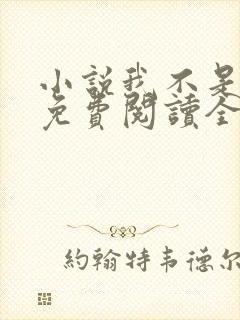 小說我不是
免費閱讀全
約翰特韦德尔